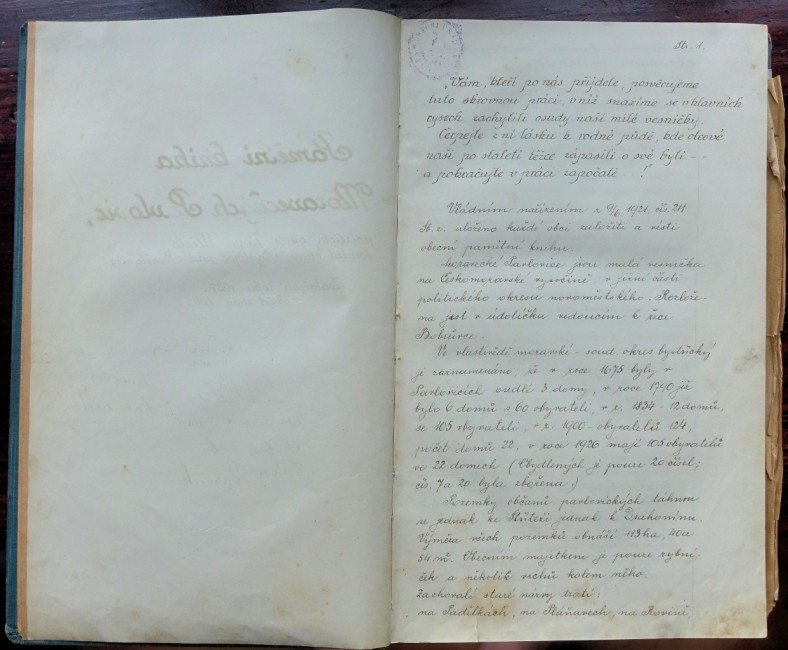 Pamětní kniha
Moraveckých Pavlovic,
Str. 1.
„Vám, kteří po nás přijdete, posvěcujeme
tuto skrovnou práci, v níž snažíme se v hlavních
rysech zachytiti osudy naší milé vesničky.
Čerpejte z ní lásku k rodné půdě, kde otcové
naši po staletí těžce zápasili o své bytí --
a pokračujte v práci započaté !"
Vládním nařízením z 9/6 1921, čís. 211
Sb. z. uloženo každé obci založiti a vésti
obecní pamětní knihu.
Moravecké Pavlovice jsou malá vesnička
na Českomoravské vysočině, v jižní části
politického okresu novoměstského. Rozlože-
na jest v údolíčku vedoucím k říce
Bobrůvce.
Ve vlastivědě moravské - soud. okres bystřický
je zaznamenáno, že v roce 1675 byly v
Pavlovicích osedlí 3 domy, v roce 1790 již
bylo 6 domů s 60 obyvateli, v r. 1834 - 12 domů,
se 105 obyvateli, v r. 1900 - obyvatelů 124,
počet domů 22, v roce 1926 mají 105 obyvatelů
ve 22 domech (Obydlených je pouze 20 čísel;
čís. 7 a 20. byla zbořena.)
Pozemky občanů pavlovických táhnou
se jednak ke Střítěži jednak k Drahonínu.
Výměra všech pozemků obnáší 113 ha, 40 a
54 m². Obecním majetkem je pouze rybní-
čík a několik vrchů kolem něho.
Zachovalé staré názvy tratí:
na Sadílkách, na Šťáňavech, na Rovině,